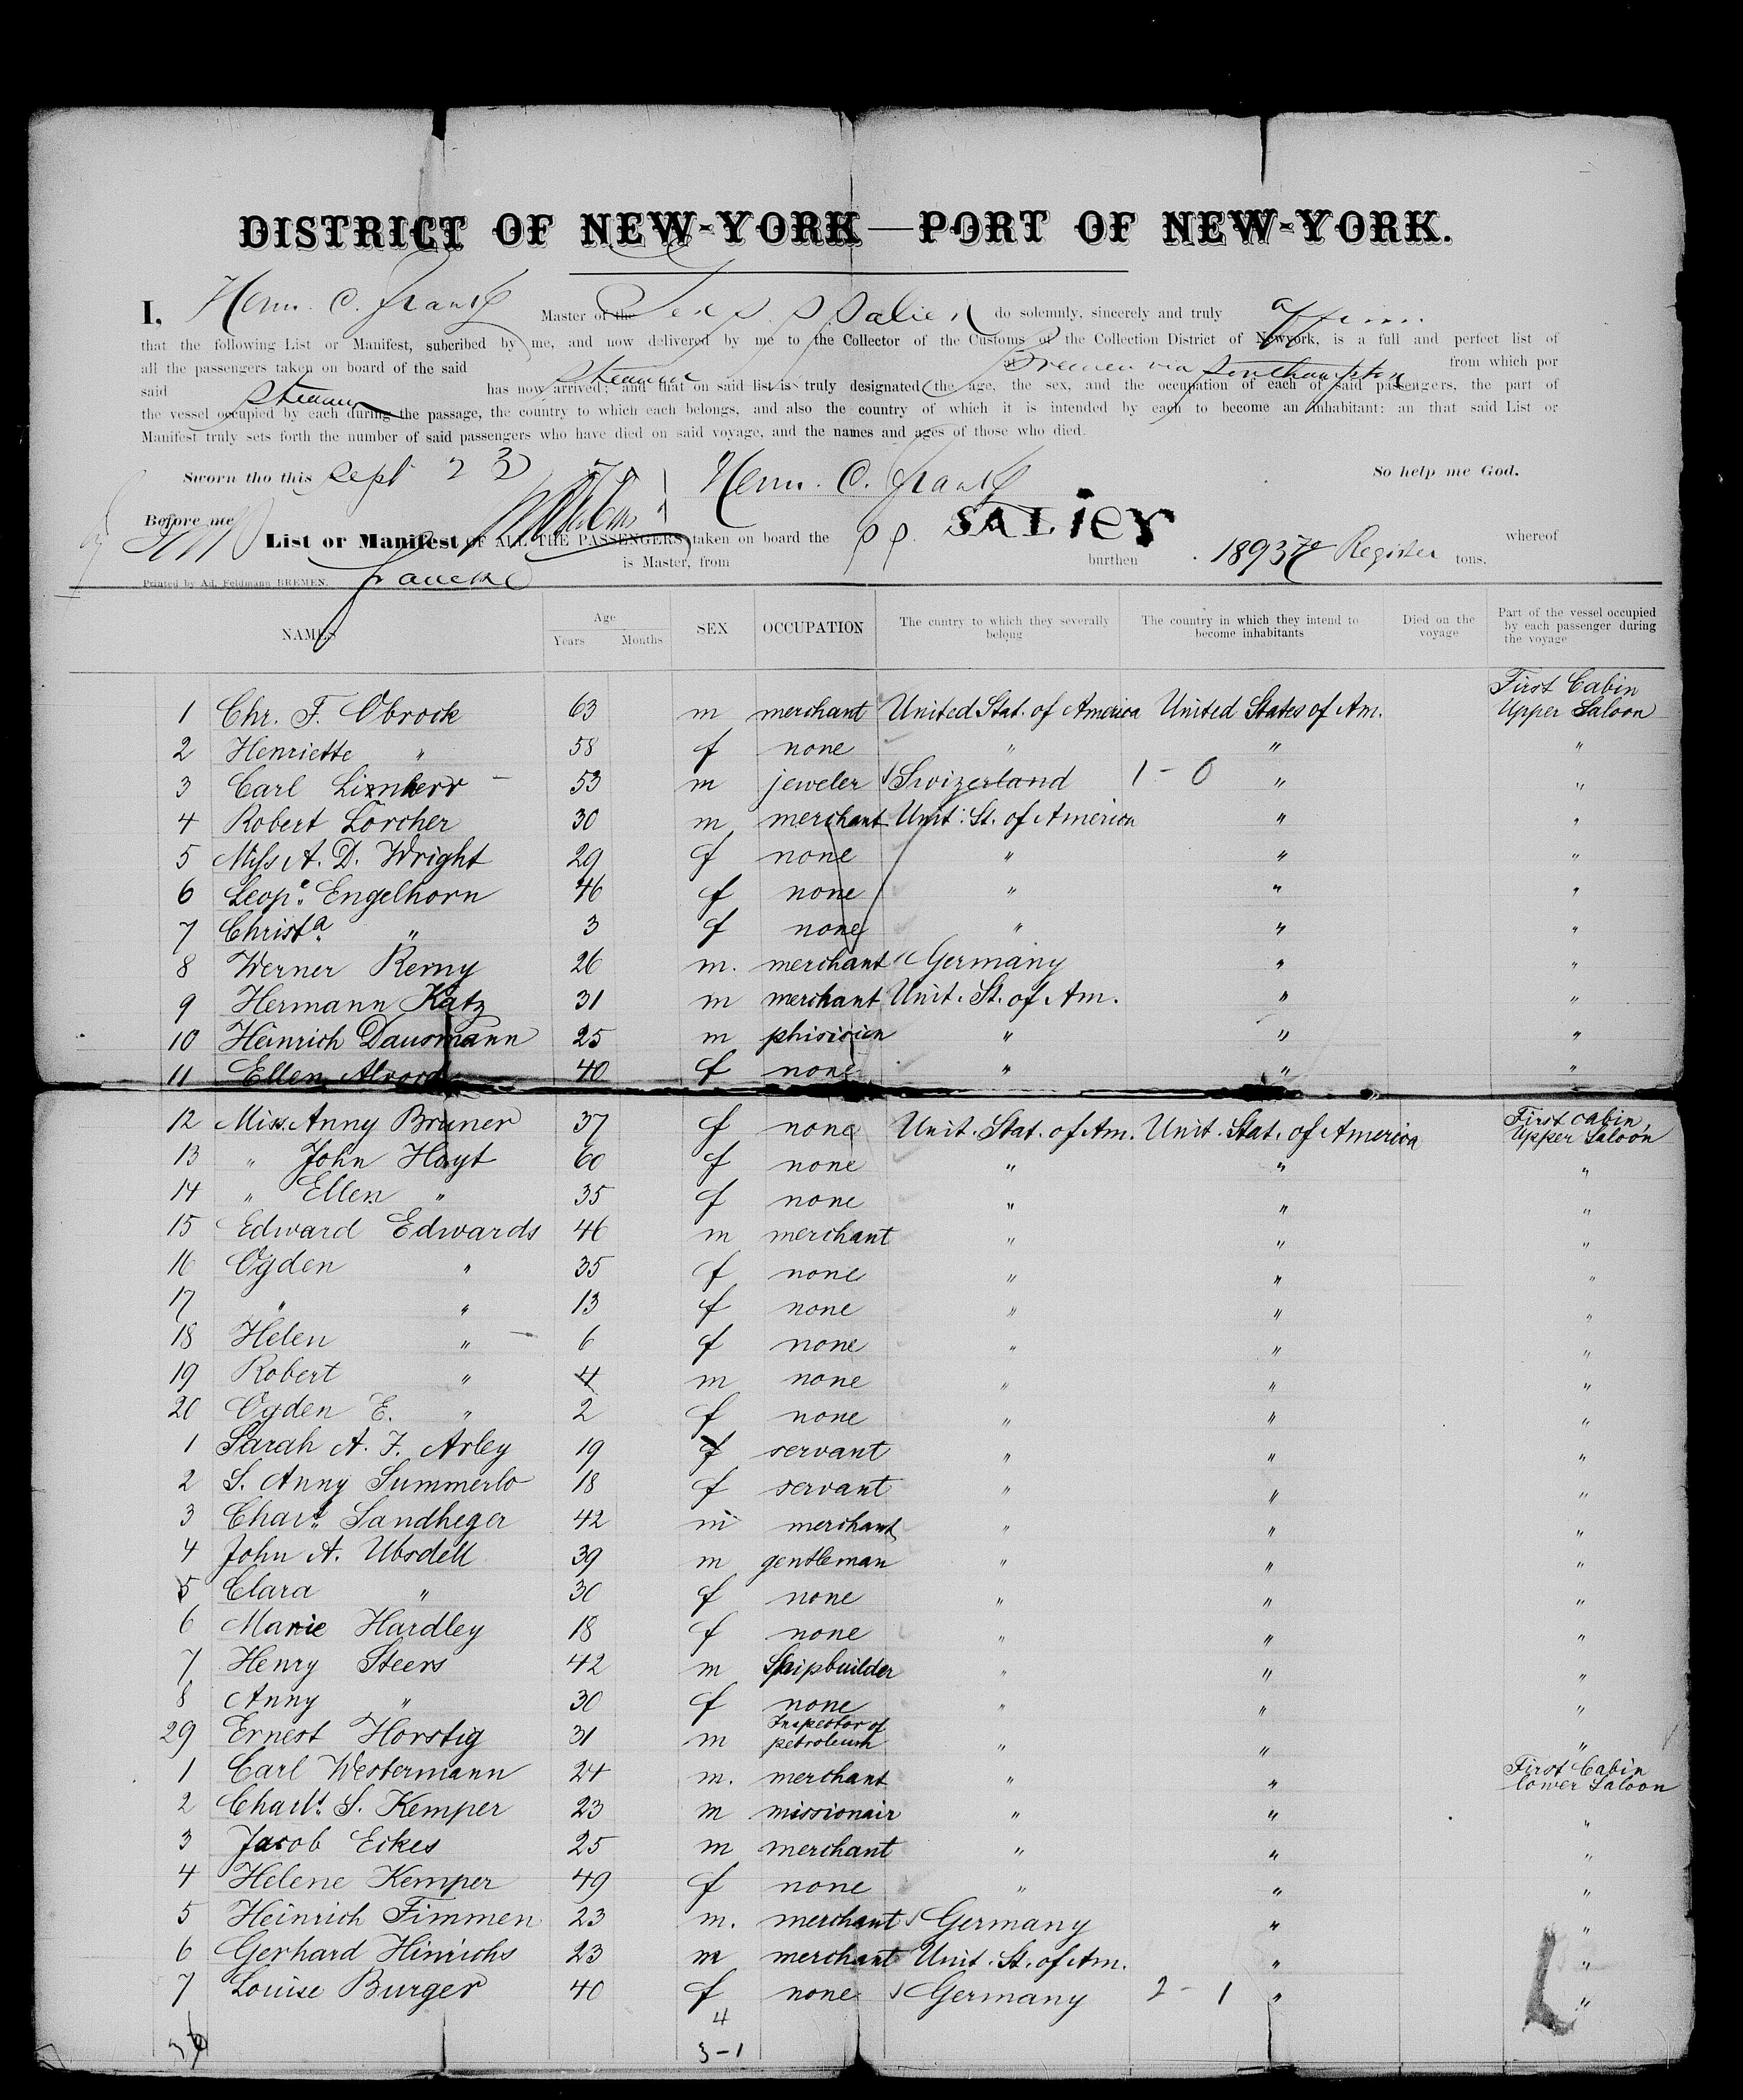 DISTRICT OF NEW-YORK—PORT OF NEW-YORK.
I, Herm. C. Franke Master of the Salier do solemnly, sincerely and truly affirm
that the following List or Manifest, subcribed by me, and now delivered by me to the Collector of the Customs of the Collection District of Newyork, is a full and perfect list of
all the passengers taken on board of the said Steamer at Bremen via Southampton from which por
said Steamer has now arrived; and that on said list is truly designated the age, the sex, and the occupation of each of said passengers, the part of
the vessel occupied by each during the passage, the country to which each belongs, and also the country of which it is intended by each to become an inhabitant: an that said List or
Manifest truly sets forth the number of said passengers who have died on said voyage, and the names and ages of those who died.
Sworn tho this Sept 23 Herm. C. Franke So help me God.
Before me
List or Manifest OF ALL THE PASSENGERS taken on board the SALIER whereof
Francke is Master, from burthen 1893 Register tons.
Printed by Ad. Feldmann BREMEN.
NAMES Age Years Months SEX OCCUPATION The cuntry to which they severally belong The country in which they intend to become inhabitants Died on the voyage Part of the vessel occupied by each passenger during the voyage
1 Chr. F. Obrock 63 m merchant United Stat. of America United States of Am. First Cabin Upper Saloon
2 Henriette " 58 f none " " "
3 Carl 53 m jeweler Swizerland 1 - 0 " "
4 Robert Lörcher 30 m merchant Unit. St. of America " "
5 Miss A. D. Wright 29 f none " " "
6 Leop.e Engelhorn 46 f none " " "
7 Christa " 3 f none " " "
8 Werner Remy 26 m. merchant Germany " "
9 Hermann Katz 31 m merchant Unit. St. of Am. " "
10 Heinrich Dausmann 25 m phisicien " " "
11 Ellen Alvord 40 f none " " "
12 Miss. Anny Bruner 37 f none Unit. Stat. of Am. Unit. Stat. of America First cabin, Upper Saloon
13 " John Hoyt 60 f none " " "
14 " Ellen " 35 f none " " "
15 Edward Edwards 46 m merchant " " "
16 Ogden " 35 f none " " "
17 " " 13 f none " " "
18 Helen " 6 f none " " "
19 Robert " 4 m none " " "
20 Ogden E. " 2 f none " " "
1 Sarah A. F. Arley 19 f servant " " "
2 S. Anny Summerlo 18 f servant " " "
3 Charl. Sandheger 42 m merchant " " "
4 John A. Ubsdell 39 m gentleman " " "
5 Clara " 30 f none " " "
6 Marie Hardley 18 f none " " "
7 Henry Steers 42 m Shipbuilder " " "
8 Anny " 30 f none " " "
29 Ernest Horstig 31 m Inspector of petroleum " " "
1 Carl Westermann 24 m. merchant " " First Cabin lower Saloon
2 Charls. S. Kemper 23 m missionair " " "
3 Jacob Eckes 25 m merchant " " "
4 Helene Kemper 49 f none " " "
5 Heinrich Fimmen 23 m. merchant Germany " "
6 Gerhard Hinrichs 23 m merchant Unit. St. of Am. " "
7 Louise Burger 40 f none Germany 2 - 1 " "
36 4
3-1